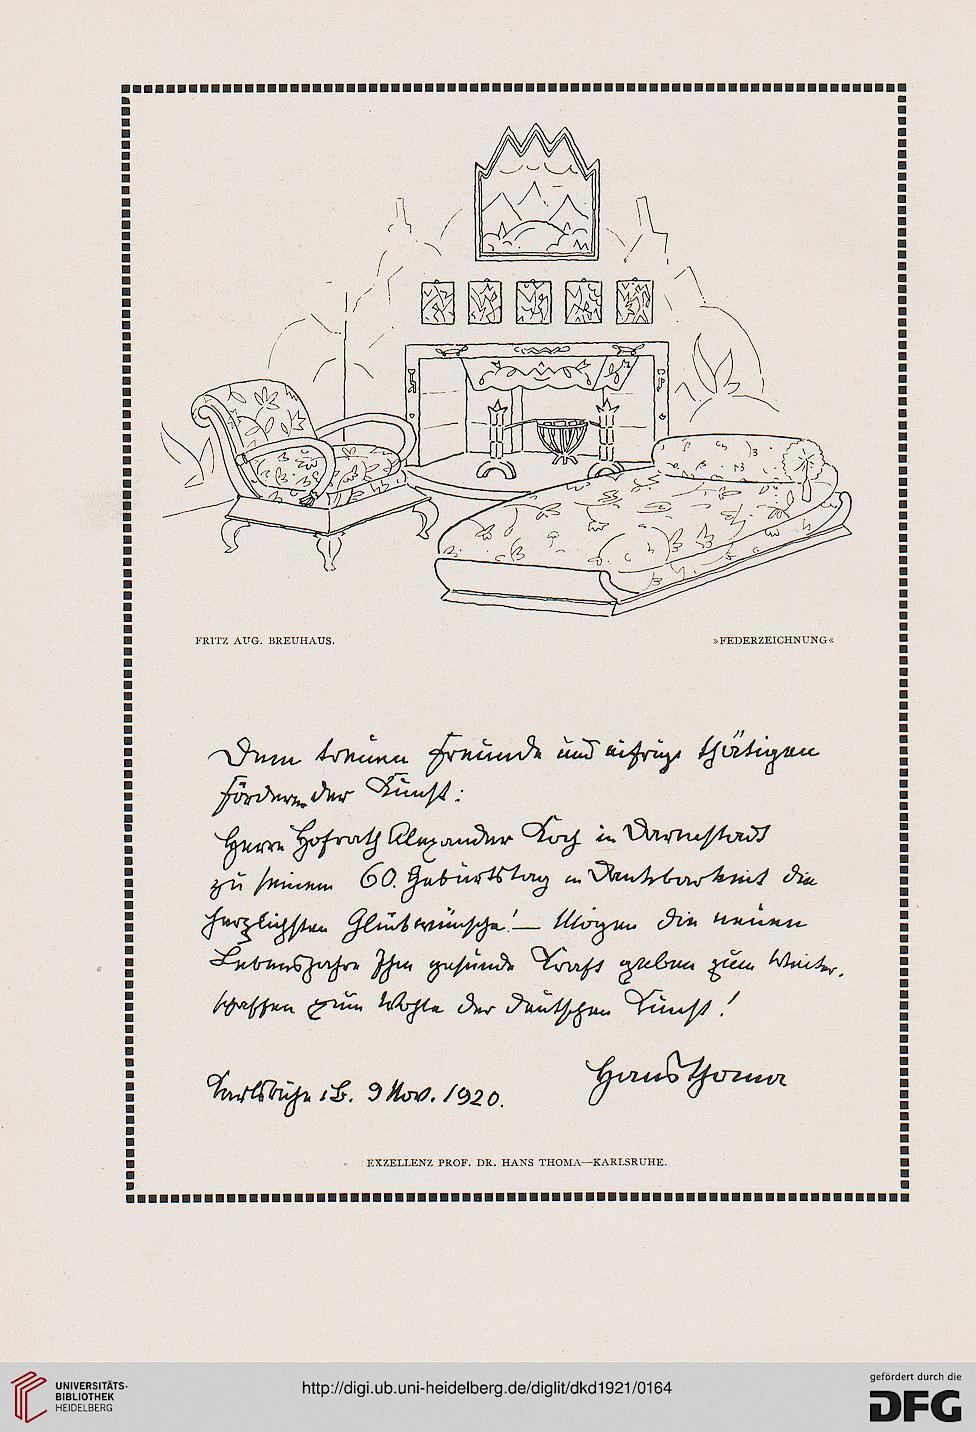 FRITZ AUG. BREUHAUS.
»FEDERZEICHNUNG«
Dem treuen Freunde und eifrigs thätigen
Förderer der Kunst:
Herrn Hofrath Alexander Koch in Darmstadt
zu seinem 60. Geburtstag in Dankbarkeit die
herzlichsten Glückwünsche! — Mögen die neuen
Lebensjahre Ihm gesunde Kraft geben zum Weiter-
schaffen zum Wohle der deutschen Kunst!
Hans Thoma
Karlsruhe i B. 9 Nov. 1920.
EXZELLENZ PROF. DR. HANS THOMA—KARLSRUHE.
UNIVERSITÄTS-
BIBLIOTHEK
HEIDELBERG
http://digi.ub.uni-heidelberg.de/diglit/dkd1921/0164
gefördert durch die
DFG